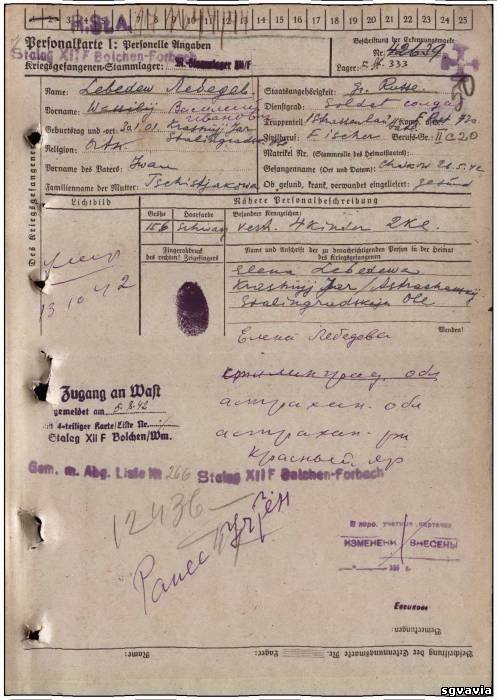 1 2 3 4 5 6 7 8 9 10 11 12 13 14 15 16 17 18 19 20 21 22 23 24 25
R.StA.
Personalkarte I: Personelle Angaben
Stalag XII F Bolchen-Forbach
Kriegsgefangenen-Stammlager: M.-Stammlager XII/F
Beschriftung der Erkennungsmarke
Nr. 42639
Lager: 333
Des Kriegsgefangenen
Name: Lebedew Лебедев
Vorname: Wassilij Василий Иванович
Geburtstag und -ort: Krasnij Jar
Stalingradskaja
Religion: Orth.
Vorname des Vaters: Iwan
Familienname der Mutter: Tschistjakowa
Staatsangehörigkeit: Russe
Dienstgrad: Soldat солдат
Truppenteil:
Zivilberuf: Fischer Berufs-Gr.: II C 20
Matrikel Nr. (Stammrolle des Heimatstaates):
Gefangennahme (Ort und Datum): Charkow 21.5.42
Ob gesund, krank, verwundet eingeliefert: gesund
Lichtbild
Nähere Personalbeschreibung
Größe Haarfarbe Besondere Kennzeichen:
156 Schwarz Verh. 4 Kinder 2 Kl.
Fingerabdruck
des rechten! Zeigefingers
Name und Anschrift der zu benachrichtigenden Person in der Heimat
des Kriegsgefangenen
Elena Lebedewa
Krasnij Jar / Astrachanskij
Stalingradskaja Obl.
Wenden!
умер
13 10 42
Елена Лебедова
Сталинград. обл
астрахан. обл
астрахан. р-н
Красный яр
Zugang an WaSt
gemeldet am 5.8.42
mit 4-teiliger Karte/Liste Nr.
Stalag XII F Bolchen/Wm.
Gem. m. Abg. Liste № 266 Stalag XII F Bolchen-Forbach
12436
Ранее учтён
В перс. учетную карточку
ИЗМЕНЕНИЯ ВНЕСЕНЫ
Bemerkungen:
Beschriftung der Erkennungsmarke Nr. Lager: Name:
sgvavia